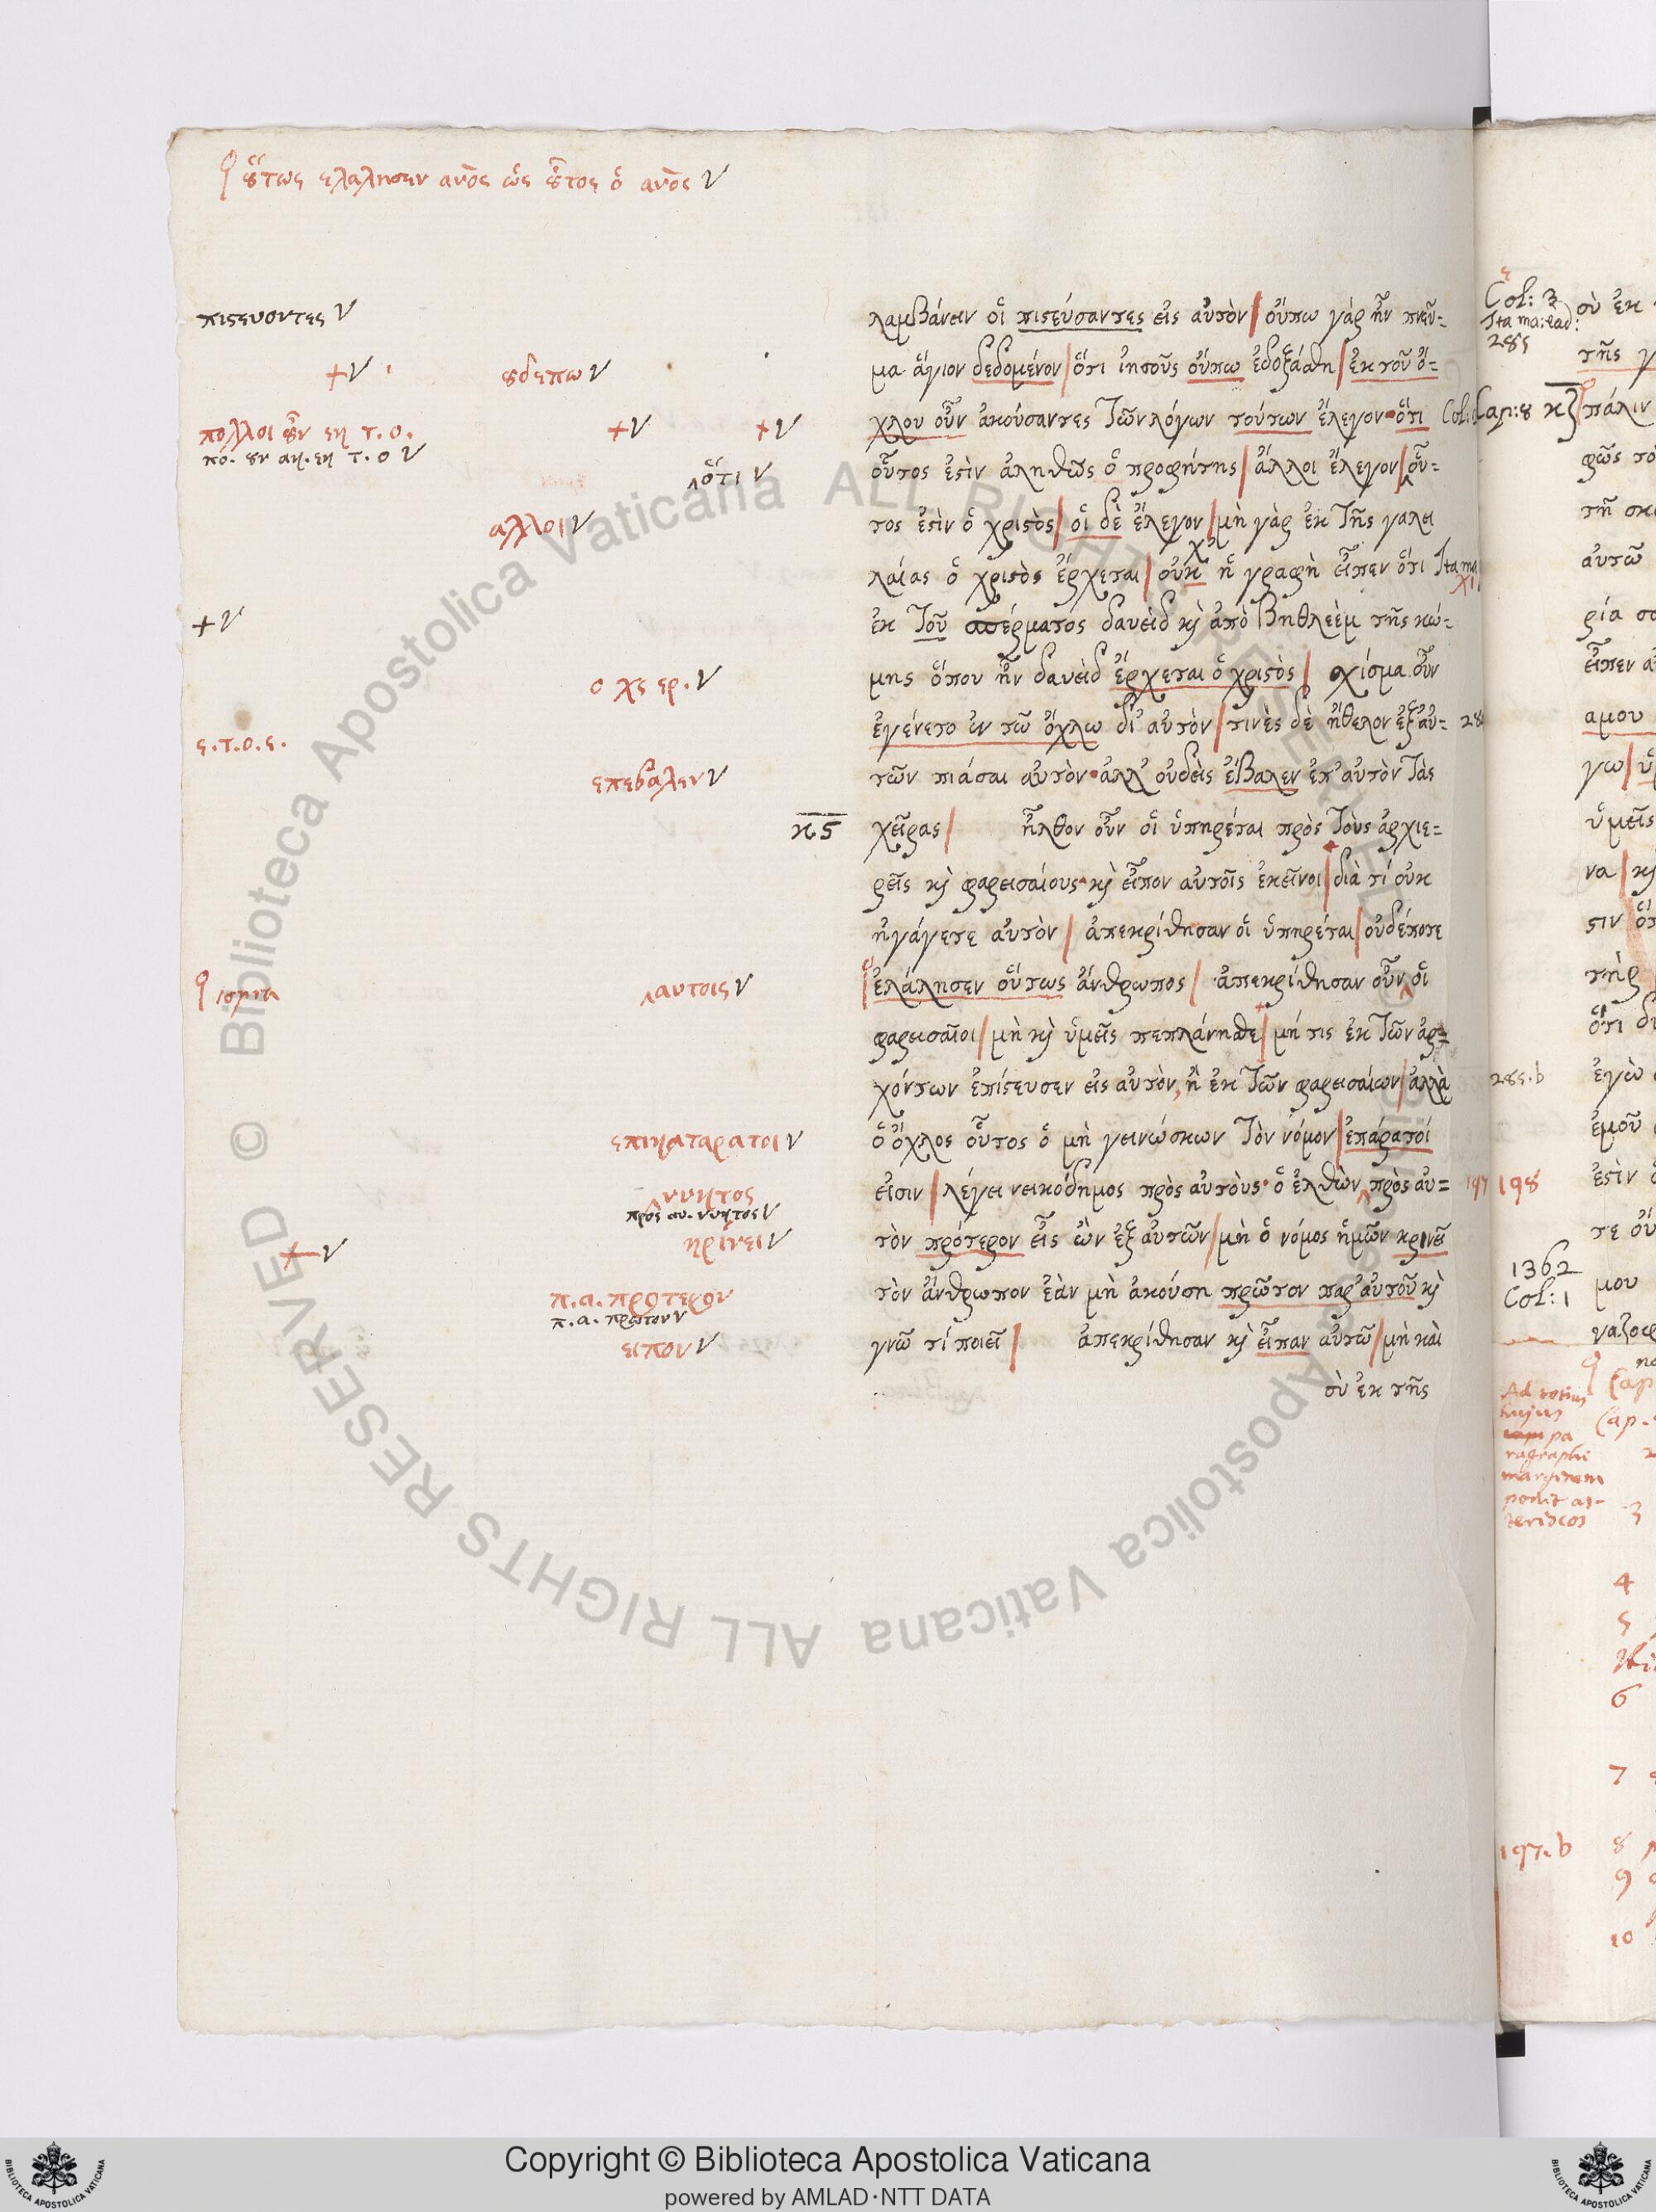 οὕτως ελαλησεν ανος ὡς οὗτος ὁ ανος
πιστευοντες
λαμβάνειν οἱ πιστεύσαντες εἰς αὐτὸν / οὔπω γὰρ ἦν πνεῦ=
+ ουδεπω
μα ἅγιον δεδομένον / ὅτι ἰησοῦς οὔπω ἐδοξάσθη / ἐκ τοῦ ὄ=
πολλοι οὖν εκ τ. ο. + +
χλου οὖν ἀκούσαντες τῶν λόγων τούτων ἔλεγον· ὅτι
πο. ουν ακ. εκ τ. ο
ὅτι
οὗτος ἐστὶν ἀληθῶς ὁ προφήτης / ἄλλοι ἔλεγον / οὗ=
αλλοι
τος ἐστὶν ὁ χριστὸς / οἱ δὲ ἔλεγον / μὴ γὰρ ἐκ τῆς γαλει
χ᾽
λαίας ὁ χριστὸς ἔρχεται / οὐκ ἡ γραφὴ εἶπεν ὅτι
+
ἐκ τοῦ σπέρματος δαυεὶδ κ̀ ἀπὸ βηθλεὲμ τῆς κώ=
ο χς ερ.
μης ὅπου ἦν δαυεὶδ ἔρχεται ὁ χριστὸς / σχίσμα οὖν
ε. τ. ο. ε.
ἐγένετο ἐν τῶ ὄχλω δι᾽ αὐτὸν / τινὲς δὲ ἤθελον ἐξ αὐ=
επεβαλεν
τῶν πιάσαι αὐτὸν· ἀλλ᾽ οὐδεὶς ἔβαλεν ἐπ᾽ αὐτὸν τὰς
κϛ χεῖρας / ἦλθον οὖν οἱ ὑπηρέται πρὸς τοὺς ἀρχιε=
ρεῖς κ̀ φαρεισαίους· κ̀ εἶπον αὐτοῖς ἐκεῖνοι / διὰ τί οὐκ
ἠγάγετε αὐτὸν / ἀπεκρίθησαν οἱ ὑπηρέται / οὐδέποτε
αυτοις
ἐλάλησεν οὕτως ἄνθρωπος / ἀπεκρίθησαν οὖν οἱ
φαρεισαῖοι / μὴ κ̀ ὑμεῖς πεπλάνησθε / μή τις ἐκ τῶν ἀρ=
χόντων ἐπίστευσεν εἰς αὐτὸν, ἢ ἐκ τῶν φαρεισαίων / ἀλλὰ
επικαταρατοι
ὁ ὄχλος οὗτος ὁ μὴ γεινώσκων τὸν νόμον / ἐπάρατοί
νυκτος
εἰσιν / λέγει νεικόδημος πρὸς αὐτοὺς· ὁ ἐλθὼν πρὸς αὐ=
πρὸς αυ. νυκτος
+ κρίνει
τὸν πρότερον εἷς ὢν ἐξ αὐτῶν / μὴ ὁ νόμος ἡμῶν κρινεῖ
π. α. προτερον
τὸν ἄνθρωπον ἐὰν μὴ ἀκούση πρῶτον παρ᾽ αὐτοῦ κ̀
π. α. πρωτον
ειπον
γνῶ τί ποιεῖ / ἀπεκρίθησαν κ̀ εἶπαν αὐτῶ / μὴ καὶ
σὺ ἐκ τῆς
Col: 3
285
σὺ ἐκ
τῆς γ
Cap: 8 κζ πάλιν
φῶς τὸ
τῆ σκ
αὐτῶ
ρία σο
εἶπεν α
αμου
γω / ὑ
ὑμεῖς
να / κ̀
σιν ὅπ
τὴρ
ὅτι δι
285.b ἐγὼ
ἐμοῦ
198 ἐστὶν
τε οὐ
1362
Col: 1
μου
ναζοφ
Ad totius
hujus
paragraphi
marginem
ponit as-
teriscos
3
4
5
6
7
197.b 8
9
10
Copyright © Biblioteca Apostolica Vaticana
powered by AMLAD·NTT DATA
BIBLIOTECA APOSTOLICA VATICANA
BIBLIOTECA APOSTOLICA VATICANA
© Biblioteca Apostolica Vaticana ALL RIGHTS RESERVED